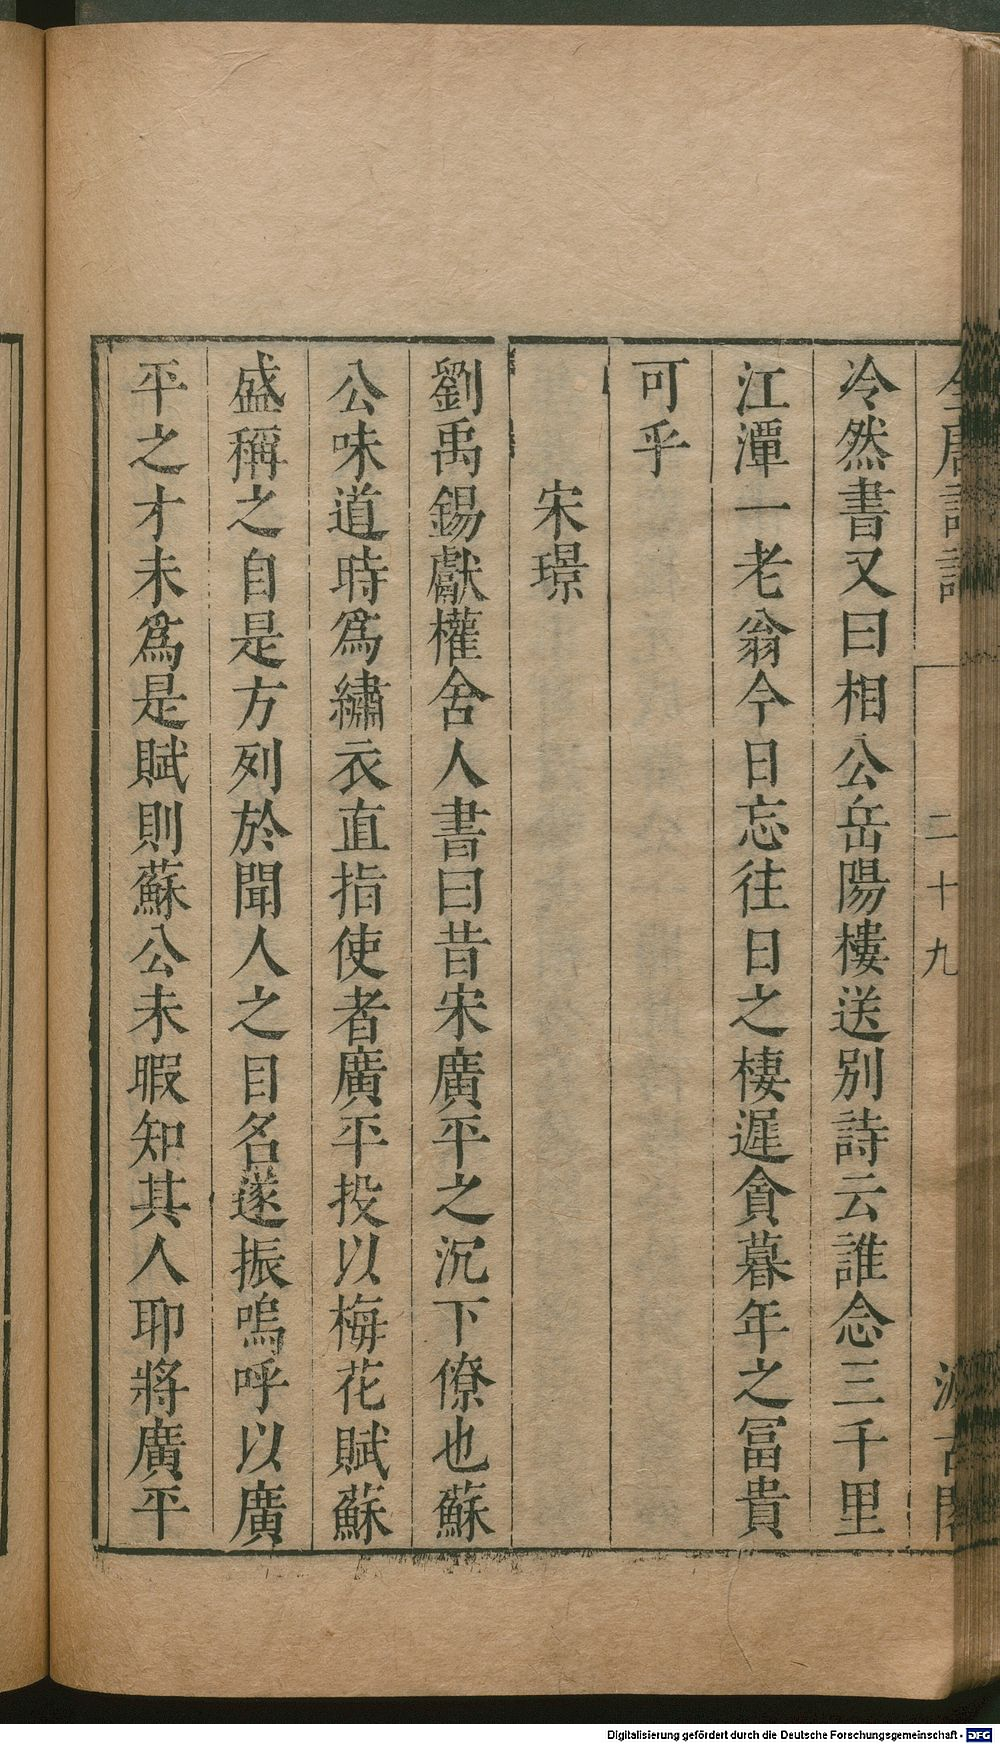 全唐詩話
二十九
汲古閣
冷然書又曰相公岳陽樓送別詩云誰念三千里
江潭一老翁今日忘往日之棲遲貪暮年之冨貴
可乎
宋璟
劉禹錫獻權舍人書曰昔宋廣平之沉下僚也蘇
公味道時爲繡衣直指使者廣平投以梅花賦蘇
盛稱之自是方列於聞人之目名遂振嗚呼以廣
平之才未爲是賦則蘇公未暇知其人耶將廣平
Digitalisierung gefördert durch die Deutsche Forschungsgemeinschaft - DFG